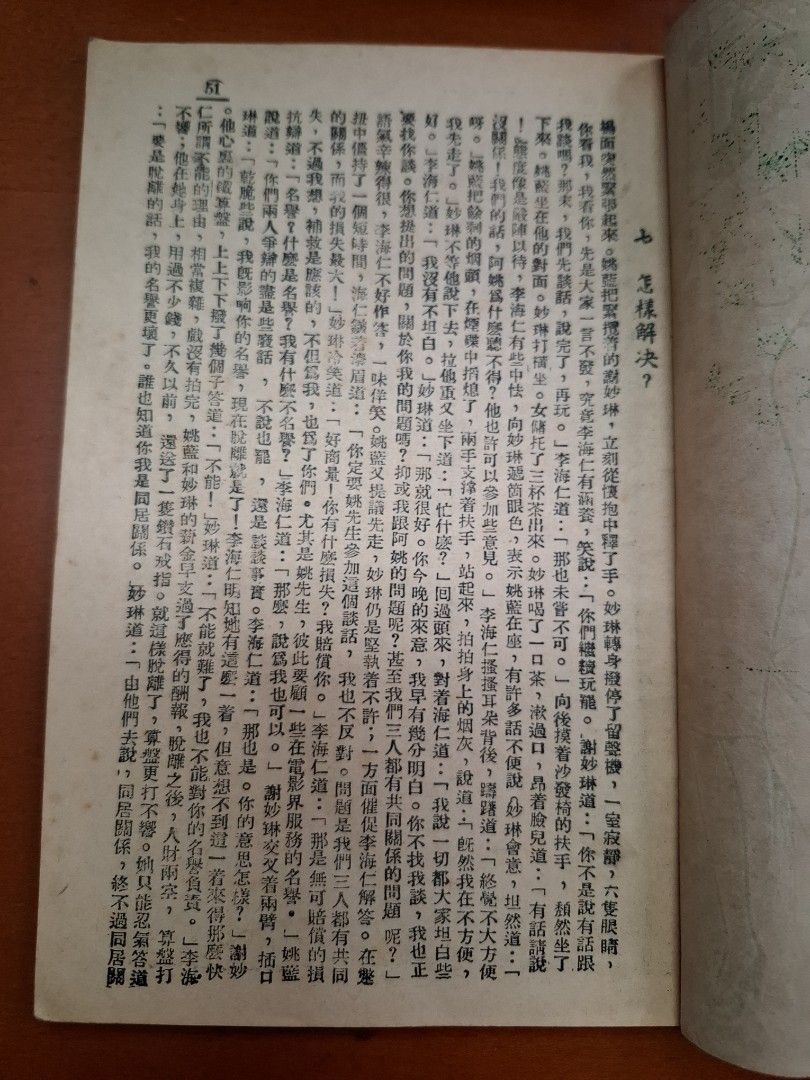 七　怎樣解决？
場面突然緊張起來。姚藍把緊攬着的謝妙琳，立刻從懷抱中釋了手。妙琳轉身撥停了留聲機，一室寂靜，六隻眼睛，
你看我，我看你，先是大家一言不發，究竟李海仁有涵養，笑說：「你們繼續玩罷。」謝妙琳道：「你不是說有話跟
我談嗎？那末，我們先談話，說完了，再玩。」李海仁道：「那也未嘗不可。」向後摸着沙發椅的扶手，頹然坐了
下來。姚藍坐在他的對面。妙琳打橫坐。女傭托了三杯茶出來。妙琳喝了一口茶，漱過口，昂着臉兒道：「有話請說
！」態度像是嚴陣以待，李海仁有些中怯，向妙琳遞箇眼色，表示姚藍在座，有許多話不便說。妙琳會意，坦然道：「
沒關係！我們的話，阿姚爲什麼聽不得？他也許可以參加些意見。」李海仁搔搔耳朵背後，躊躇道：「終覺不大方便
呀。」姚藍把餘剩的烟頭，在煙碟中捎熄了，兩手支撐着扶手，站起來，拍拍身上的烟灰，說道：「旣然我在不方便，
我先走了。」妙琳不等他說下去，拉他重又坐下道：「忙什麼？」回過頭來，對着海仁道：「我說一切都大家坦白些
好。」李海仁道：「我沒有不坦白。」妙琳道：「那就很好。你今晚的來意，我早有幾分明白。你不找我談，我也正
要找你談。你想提出的問題，關於你我的問題嗎？抑或我跟阿姚的問題呢？甚至我們三人都有共同關係的問題呢？」
語氣辛辣得很，李海仁不好作答，一味佯笑。姚藍又提議先走，妙琳仍是堅執着不許；一方面催促李海仁解答。在蹩
扭中僵持了一個短時間，海仁皺着濃眉道：「你定要姚先生參加這個談話，我也不反對。問題是我們三人都有共同
的關係，而我的損失最大！」妙琳冷笑道：「好商量！你有什麼損失？我賠償你。」李海仁道：「那是無可賠償的損
失，不過我想，補救是應該的，不但爲我，也爲了你們。尤其是姚先生，彼此要顧一些在電影界服務的名譽。」姚藍
抗辯道：「名譽？什麼是名譽？我有什麼不名譽？」李海仁道：「那麼，說爲我也可以。」謝妙琳交叉着兩臂，插口
說道：「你們兩人爭辯的盡是些廢話，不說也罷，還是談談事實。李海仁道：「那也是。你的意思怎樣？」謝妙
琳道：「乾脆些說，我旣影响你的名譽，現在脫離就是了！李海仁明知她有這麼一着，但意想不到這一着來得那麼快
。他心裏的鐵算盤，上上下下撥了幾個子答道：「不能！」妙琳道：「不能就難了，我也不能對你的名譽負責。」李海
仁所謂不能的理由，相當複雜，戲沒有拍完，姚藍和妙琳的薪金早支過了應得的酬報，脫離之後，人財兩空，算盤打
不響；他在她身上，用過不少錢，不久以前，還送了一隻鑽石戒指。就這樣脫離了，算盤更打不響。她只能忍氣答道
：「要是脫離的話，我的名譽更壞了。誰也知道你我是同居關係。」妙琳道：「由他們去說，同居關係，終不過同居關
51